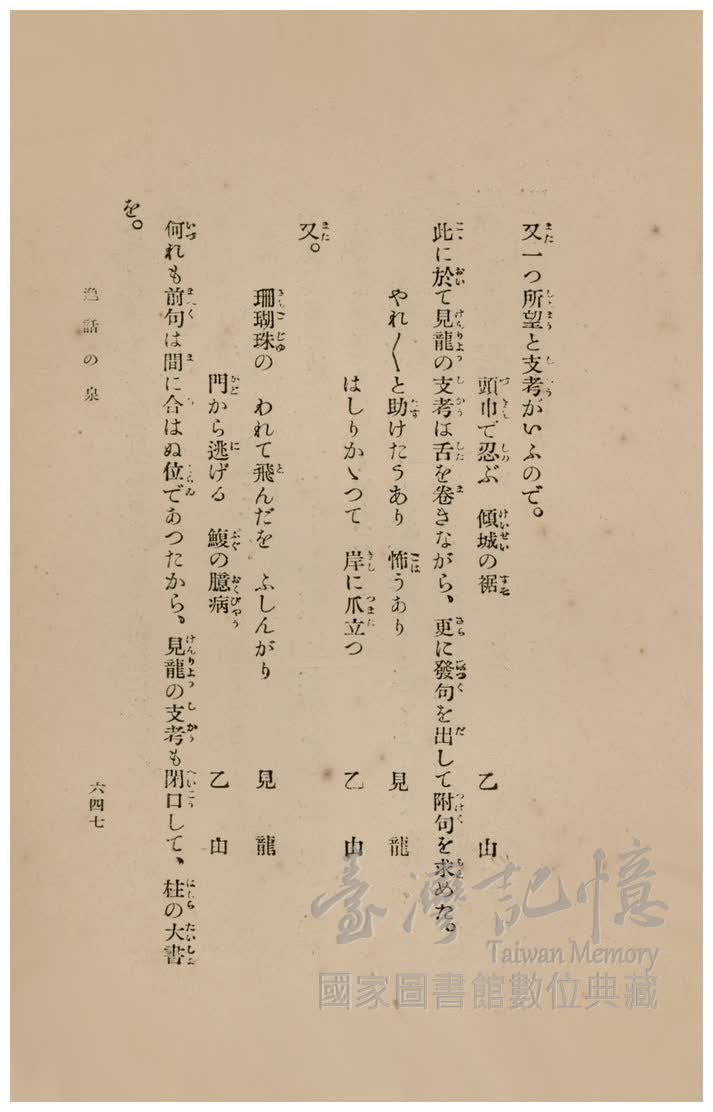 又一つ所望と支考がいふので。
頭巾で忍ぶ　傾城の裾　乙由
此に於て見龍の支考は舌を卷きながら、更に發句を出して附句を求めた。
やれ〱と助けたうあり　怖うあり　見龍
はしりかゝつて　岸に爪立つ　乙由
又。
珊瑚珠の　われて飛んだを　ふしんがり　見龍
門から逃げる　鰒の臆病　乙由
何れも前句は間に合はぬ位であつたから、見龍の支考も閉口して、柱の大書
を。
逸話の泉
六四七
臺灣記憶
Taiwan Memory
國家圖書館數位典藏